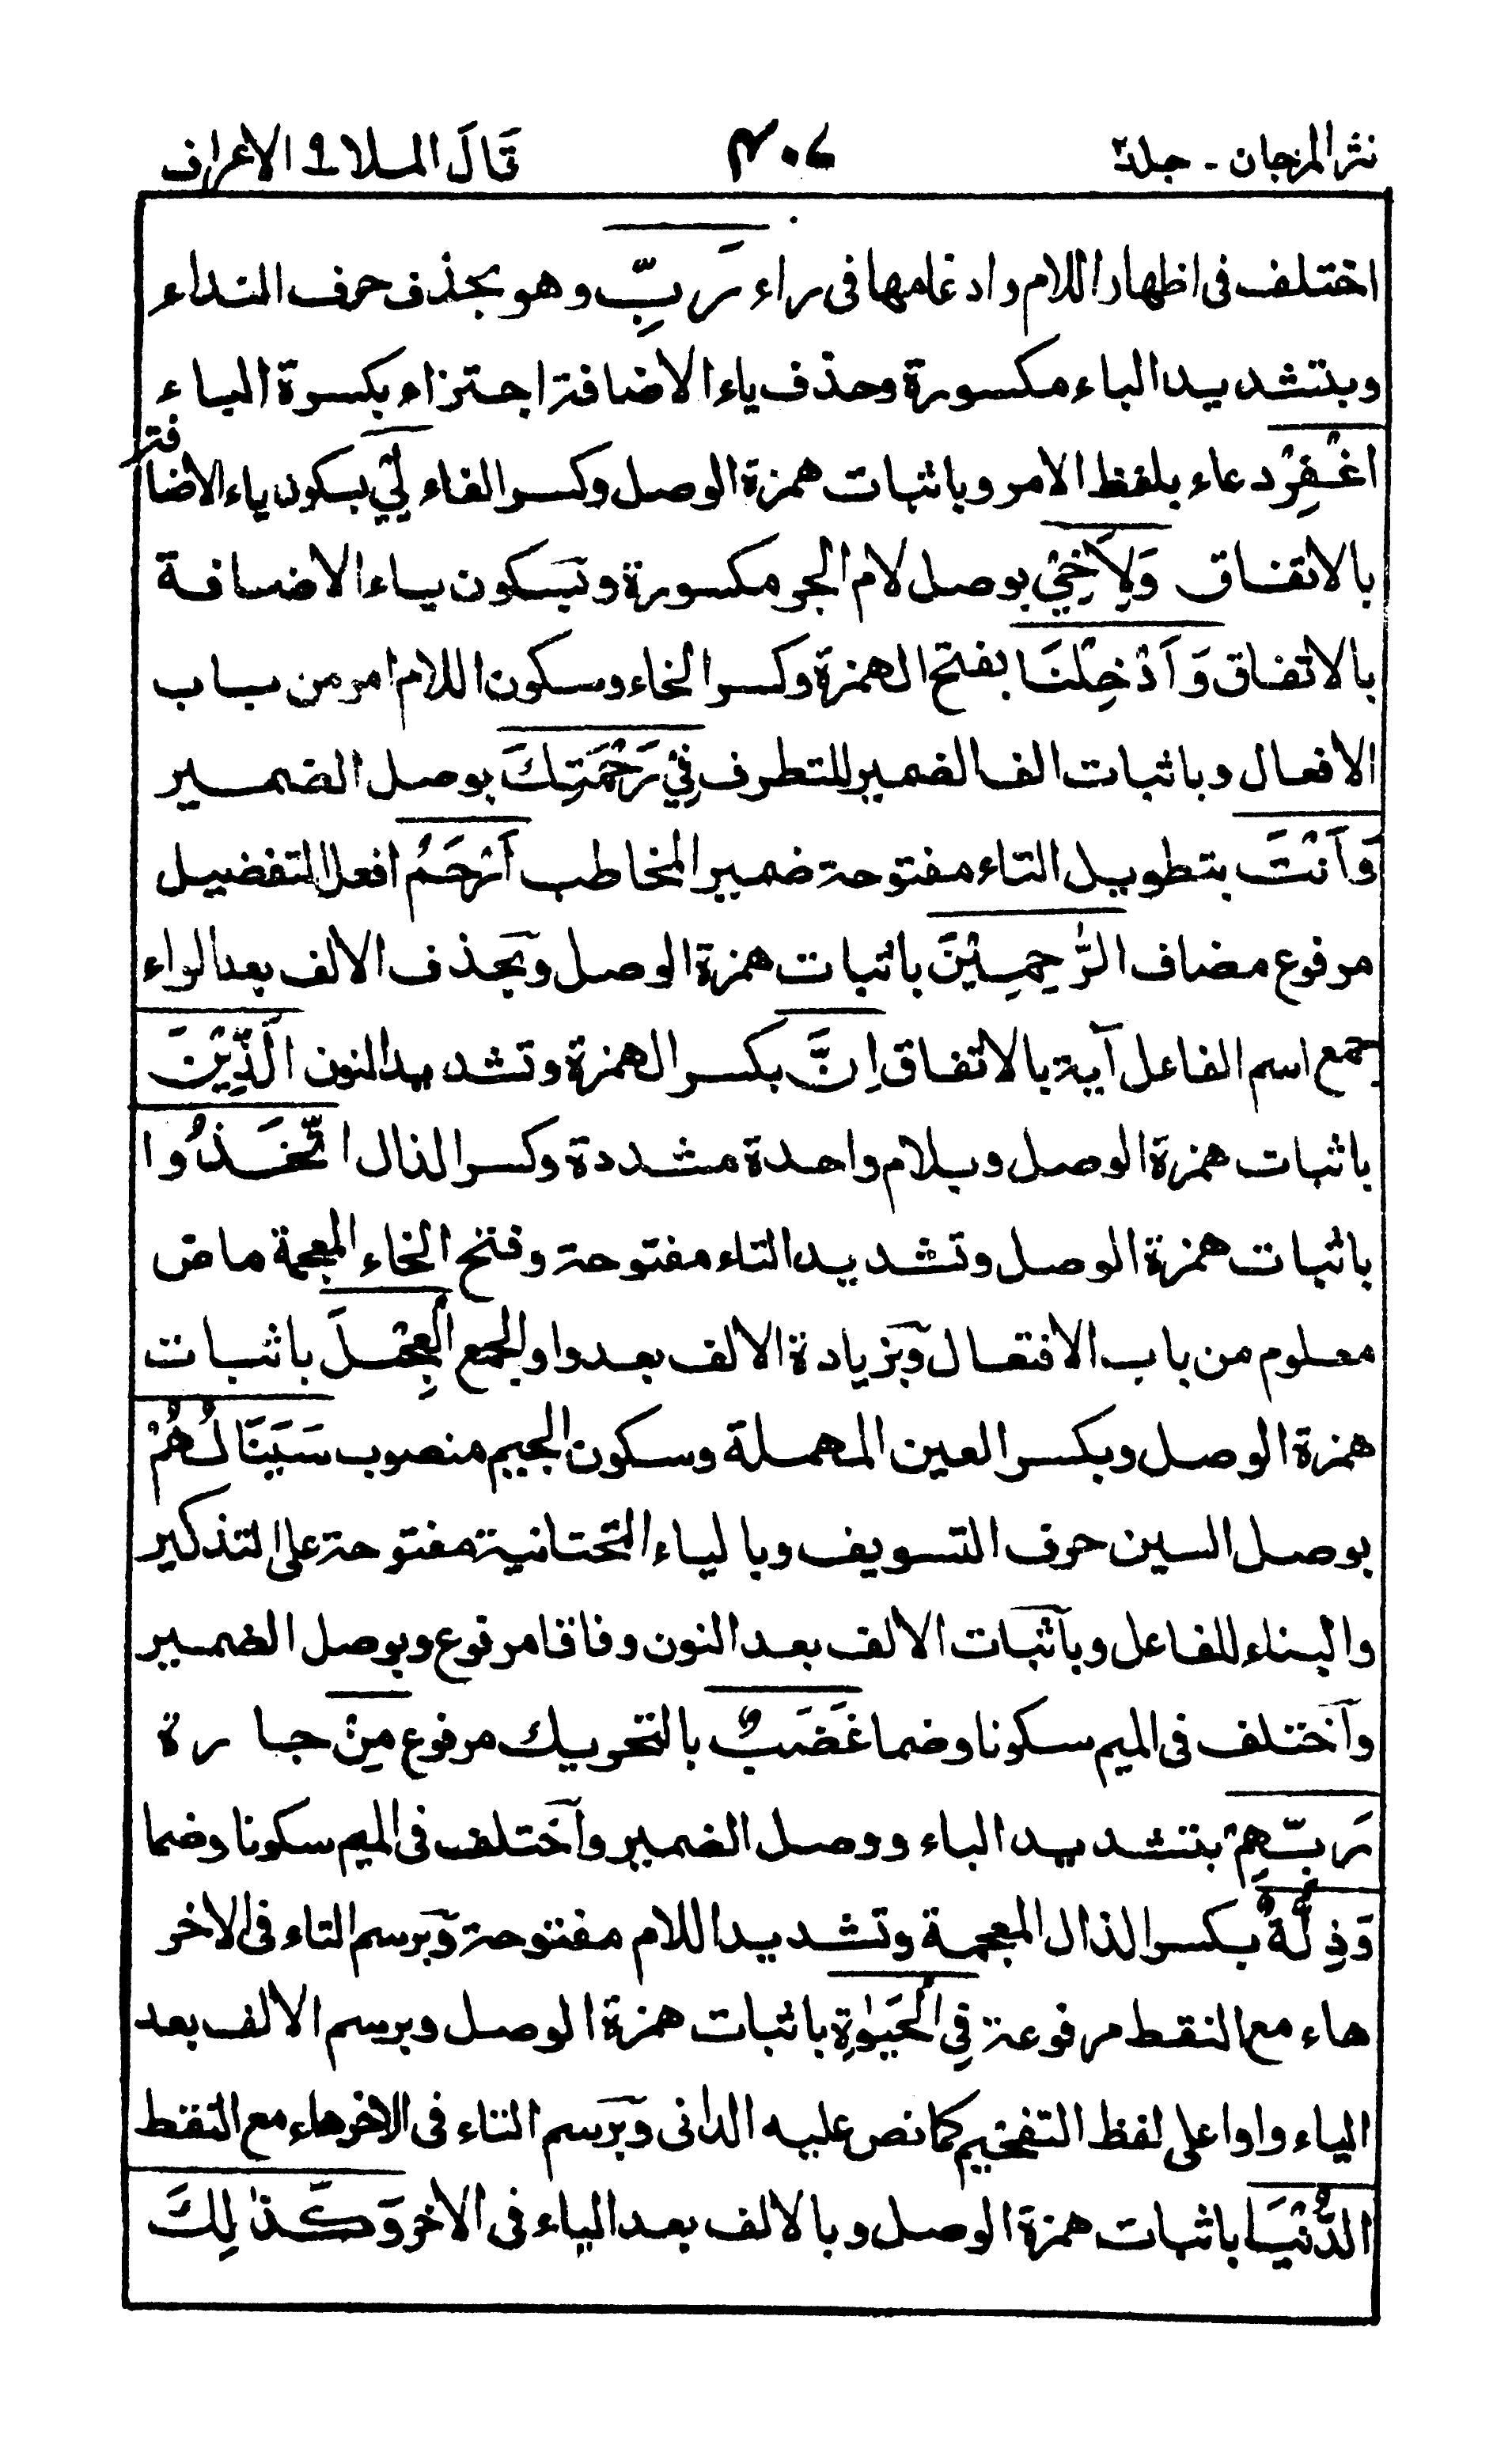 نثر المرجان - جلد٢ ٤٠٧ قَالَ الملا ٩ الاعراف
اختلف فى اظهار اللام وادغامها فى راء رَبِّ وهو بحذف حرف النداء
وبتشديد الباء مكسورة وحذف ياء الاضافة اجتزاء بكسرة الباء
اغْفِرْ دعاء بلفظ الامر وباثبات همزة الوصل وكسر الفاء لِيْ بسكون ياء الاضافة
بالاتفاق وَلِاَخِيْ بوصل لام الجر مكسورة وبسكون ياء الاضافة
بالاتفاق وَاَدْخِلْنَا بفتح الهمزة وكسر الخاء وسكون اللام امر من باب
الافعال وباثبات الف الضمير للتطرف فِيْ رَحْمَتِكَ بوصل الضمير
وَاَنْتَ بتطويل التاء مفتوحة ضمير المخاطب اَرْحَمُ افعل التفضيل
مرفوع مضاف الرّٰحِمِيْنَ باثبات همزة الوصل وبحذف الالف بعد الراء
جمع اسم الفاعل آية بالاتفاق اِنَّ بكسر الهمزة وتشديد النون الَّذِيْنَ
باثبات همزة الوصل وبلام واحدة مشددة وكسر الذال اتَّخَذُوا
باثبات همزة الوصل وتشديد التاء مفتوحة وفتح الخاء المعجمة ماض
معلوم من باب الافتعال وبزيادة الالف بعد واو الجمع الْعِجْلَ باثبات
همزة الوصل وبكسر العين المهملة وسكون الجيم منصوب سَيَنَالُهُمْ
بوصل السين حرف التسويف وبالياء التحتانية مفتوحة على التذكير
والبناء للفاعل وباثبات الالف بعد النون وفاقا مرفوع وبوصل الضمير
واختلف فى الميم سكونا وضما غَضَبٌ بالتحريك مرفوع مِنْ جارة
رَبِّهِمْ بتشديد الباء ووصل الضمير واختلف فى الميم سكونا وضما
وَذِلَّةٌ بكسر الذال المعجمة وتشديد اللام مفتوحة وبرسم التاء فى الاخر
هاء مع النقط مرفوعة فِى الْحَيٰوةِ باثبات همزة الوصل وبرسم الالف بعد
الياء واوا على لفظ التفخيم كما نص عليه الدانى وبرسم التاء فى الاخر هاء مع النقط
الدُّنْيَا باثبات همزة الوصل وبالالف بعد الياء فى الاخر وَكَذٰلِكَ